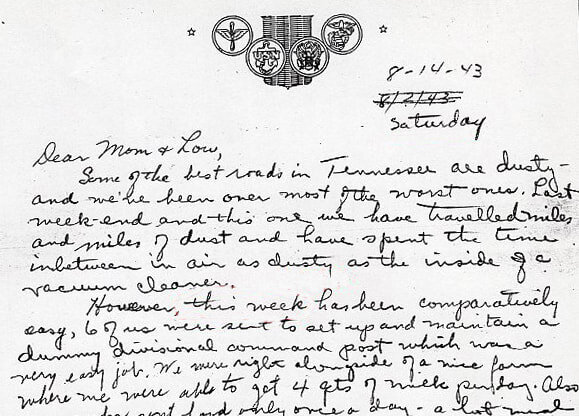 8-14-43
8/2/43
Saturday
Dear Mom & Low,
Some of the best roads in Tennessee are dusty-
and we've been over most of the worst ones. Last
week-end and this one we have travelled miles
and miles of dust and have spent the time
inbetween in air as dusty as the inside of a
vacuum cleaner.
However, this week has been comparatively
easy, 6 of us were sent to set up and maintain a
dummy divisional command post which was a
very easy job. We were right alongside of a nice farm
where we were able to get 4 qts of milk per day. Also
and only once a day - a hot meal